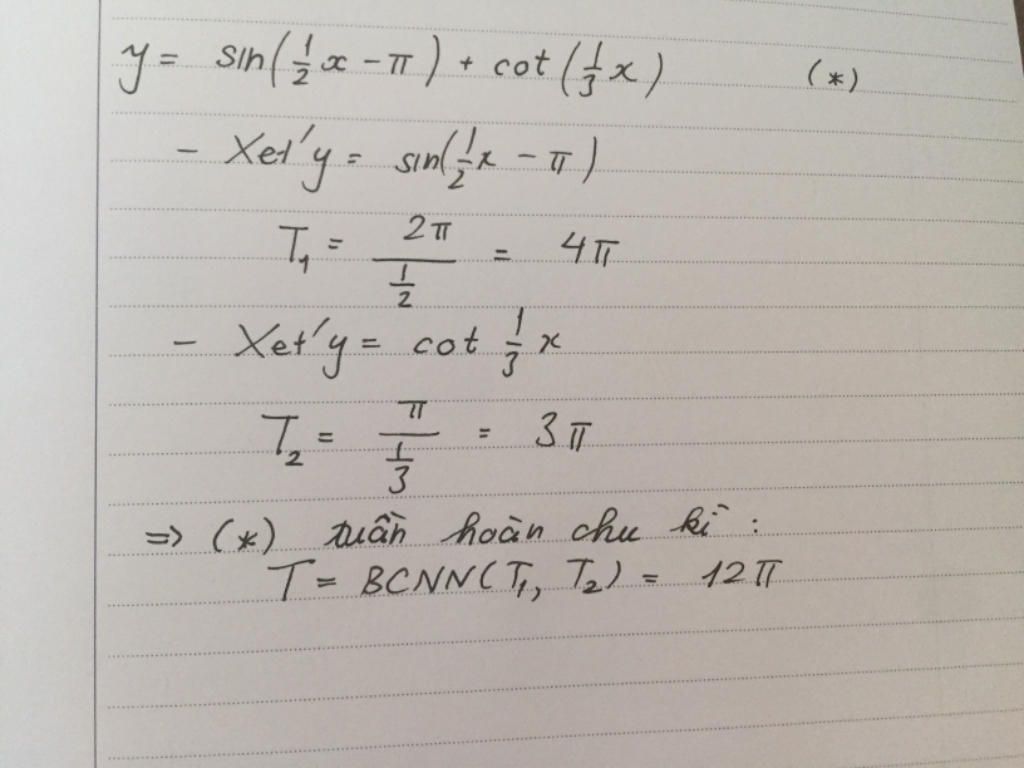 y = sin(1/2 x - π) + cot(1/3 x) (*)
- Xét y = sin(1/2 x - π)
T₁ = 2π / 1/2 = 4π
- Xét y = cot 1/3 x
T₂ = π / 1/3 = 3π
=> (*) tuần hoàn chu kì :
T = BCNN(T₁, T₂) = 12π